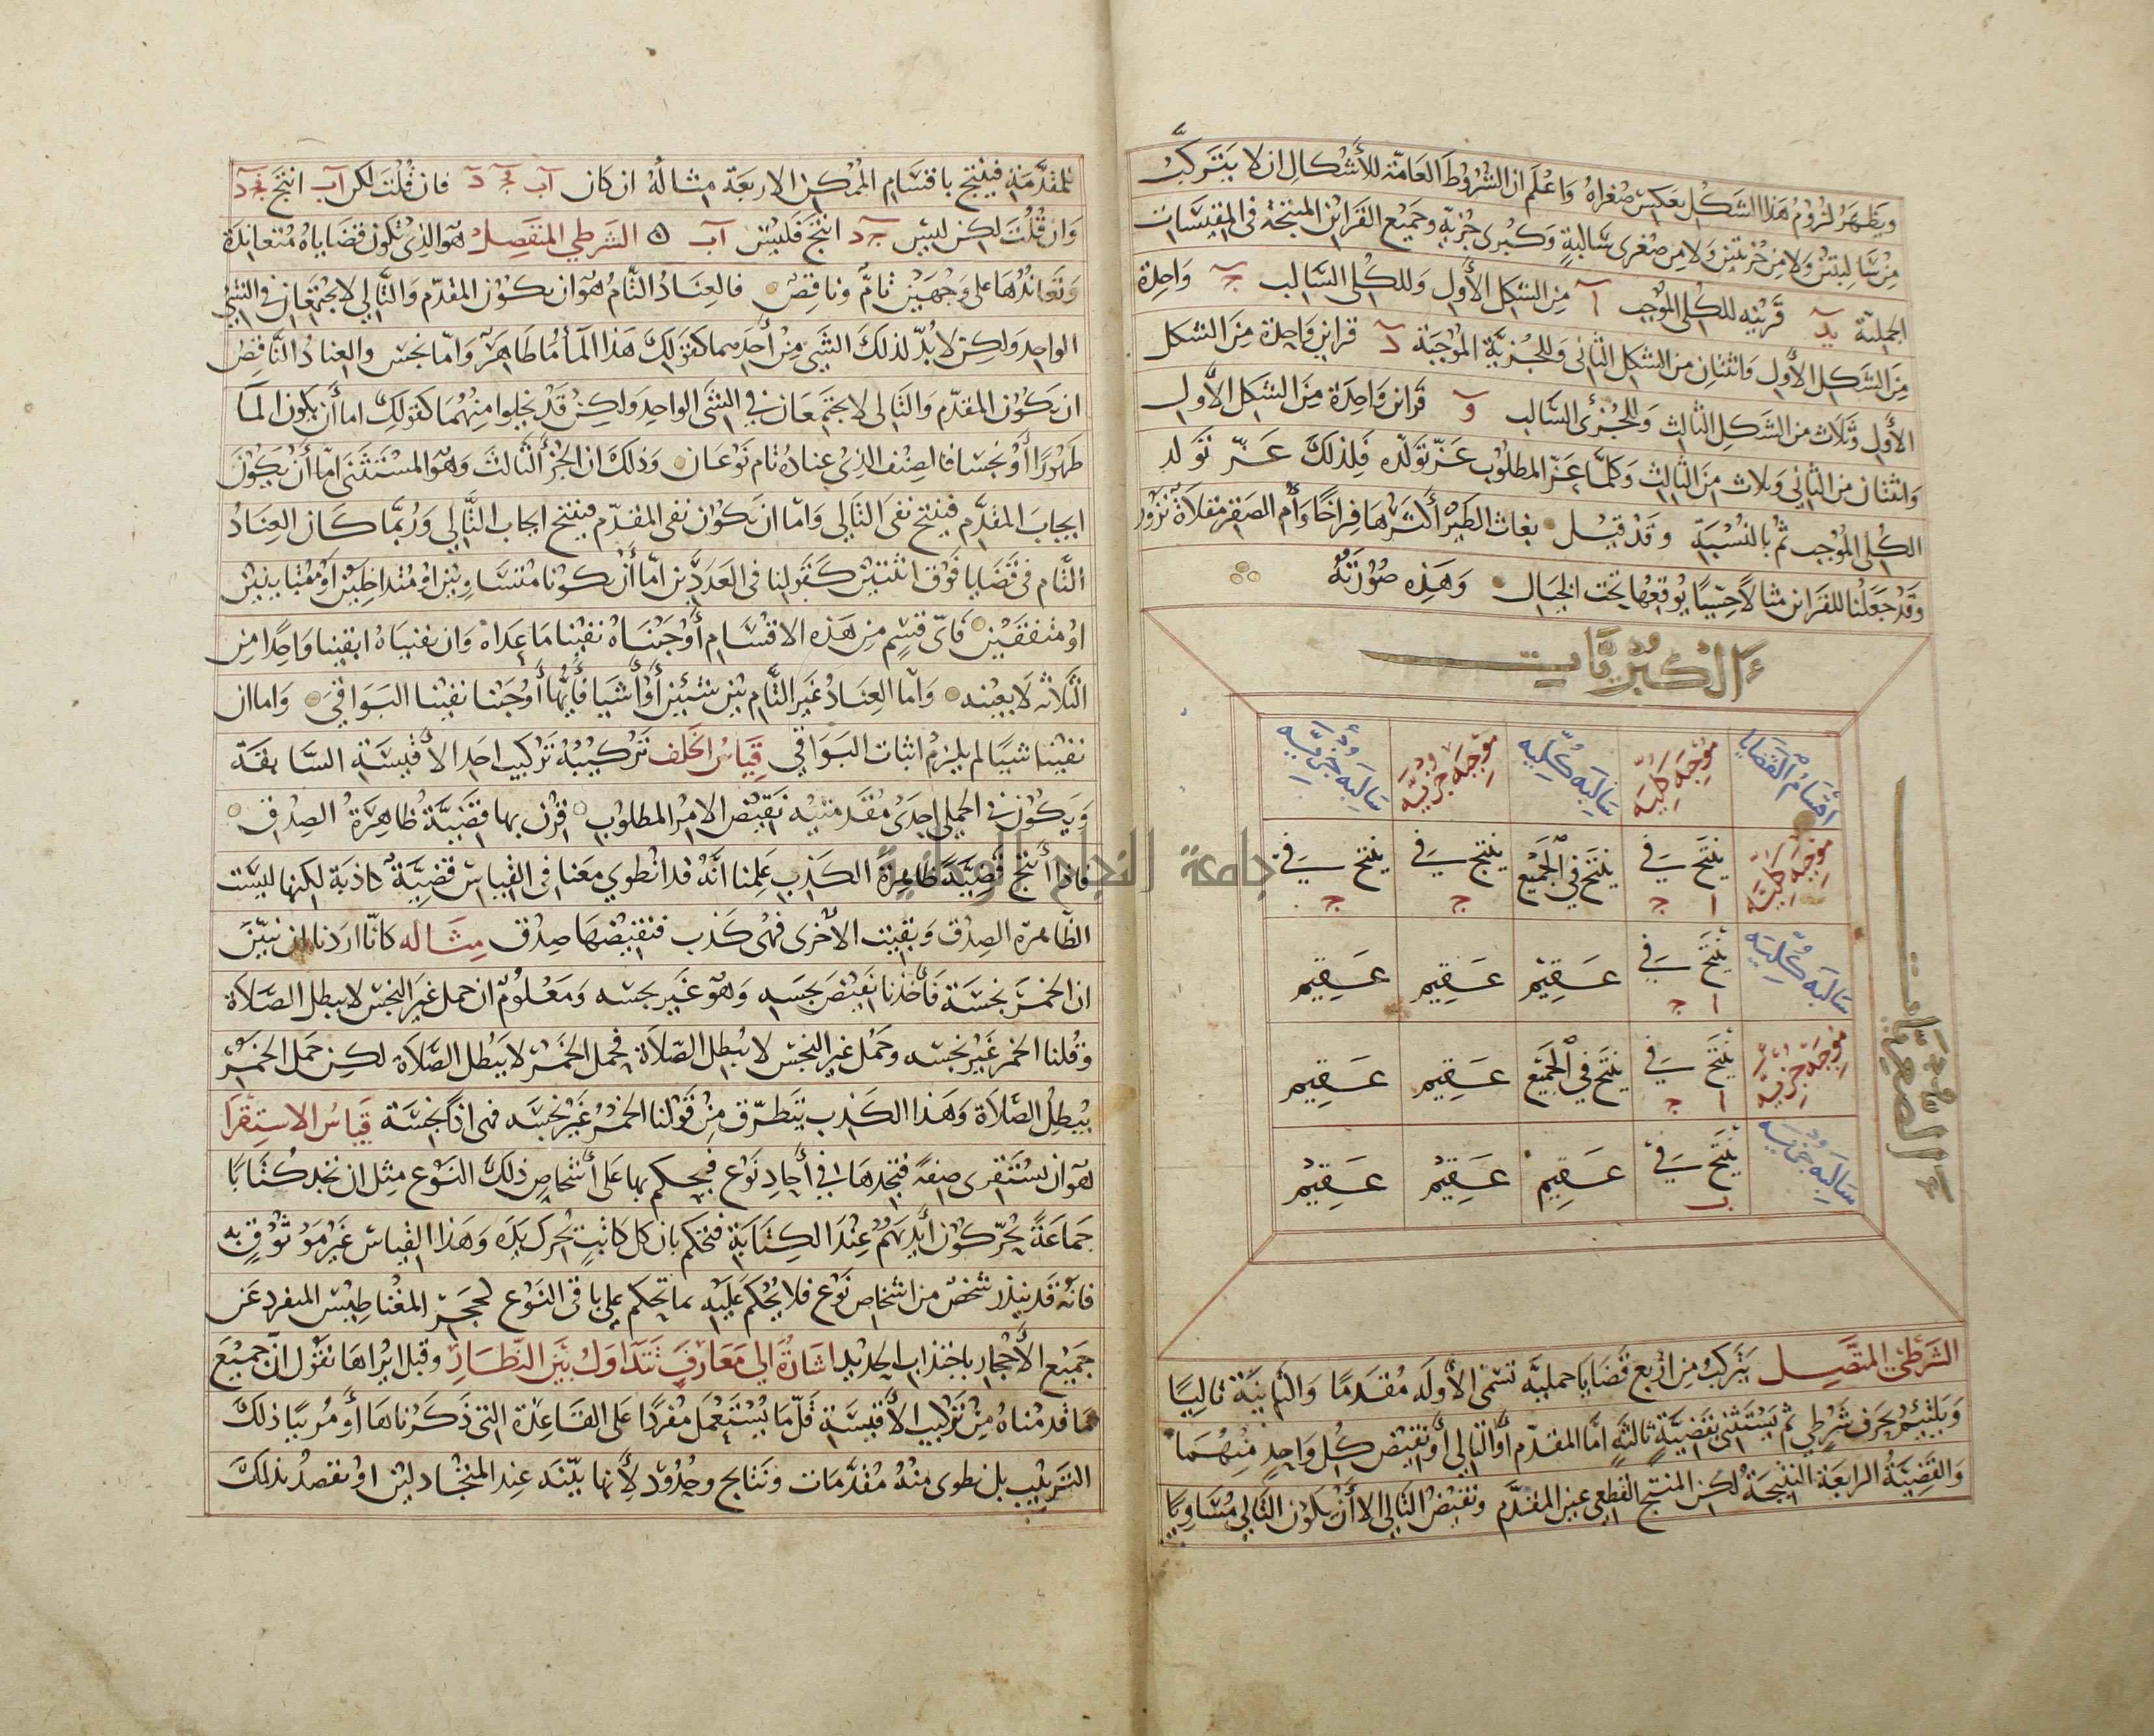 ويظهر لزوم هذا الشكل بعكس صغراه واعلم ان الشروط العامة للأشكال ان لا يتركب
من سالبتين ولا من جزئيتين ولا من صغرى سالبة وكبرى جزئية وجميع القرائن المنتجة في المقيسات
الحملية يد قرينه للكلي الموجب آ من الشكل الأول وللكلي السالب جـ واحدة
من الشكل الأول واثنتان من الشكل الثاني وللجزئية الموجبة د قرائن واحدة من الشكل
الأول وثلاث من الشكل الثالث وللجزئي السالب و قرائن واحدة من الشكل الأول
واثنتان من الثاني وثلاث من الثالث وكلما عز المطلوب عز تولده فلذلك عز تولد
الكلي الموجب ثم بالنسبة وقد قيل بغاث الطير أكثرها فراخا وأم الصقر مقلاة نزور
وقد جعلنا للقرائن مثالا حسيا يوقعها تحت الخيال وهذه صورته
الكبريات
الصغريات
أقسام القضايا موجبه كليه سالبه كليه موجبه جزئيه سالبه جزئيه
موجبه كليه ينتج في ا ج ينتج في الجميع ينتج في ج ينتج في ج
سالبه كليه ينتج في ا ج عقيم عقيم عقيم
موجبه جزئيه ينتج في ا ج ينتج في الجميع عقيم عقيم
سالبه جزئيه ينتج في ب عقيم عقيم عقيم
الشرطي المتصل يتركب من أربع قضايا حملية تسمى الأوله مقدما والثانية تاليا
ويلتئم بحرف شرطي ثم يستثنى بقضية ثالثة اما المقدم أو التالي أو نقيض كل واحد منهما
والقضية الرابعة النتيجة لكن المنتج القطعي عين المقدم ونقيض التالي الا أن يكون التالي مساويا
للمقدمة فينتج باقسام الممكن الاربعة مثاله ان كان آب فجـ د فان قلت لكن آب انتج فجـ د
وان قلت لكن ليس جـ د انتج فليس آب ه الشرطي المنفصل هو الذي تكون قضاياه متعاندة
وتعاندها على وجهين تام وناقص فالعناد التام هو ان يكون المقدم والتالي لا يجتمعان في الشئ
الواحد ولكن لا بد لذلك الشئ من أحدهما كقولك هذا الما أما طاهر واما نجس والعناد الناقص
ان يكون المقدم والتالي لا يجتمعان في الشئ الواحد ولكن قد يخلوا منهما كقولك اما أن يكون الما
طهورا أو نجسا فالصنف الذي عناده تام نوعان وذلك ان الجزأ الثالث وهو المستثنى اما أن يكون
ايجاب المقدم فينتج نفى التالي واما ان يكون نفى المقدم فينتج ايجاب التالي وربما كان العناد
التام في قضايا فوق اثنتين كقولنا في العددين اما أن يكونا متساويين او متداخلين او متباينين
او متفقين فأى قسم من هذه الاقسام أوجبناه نفينا ما عداه وان نفيناه ابقينا واحدا من
الثلاثه لا بعينه واما العناد غير التام بين شيئين أو أشيا فأيها أوجبنا نفينا البواقي واما ان
نفينا شيئا لم يلزم اثبات البواقي قياس الخلف تركيبه تركيب احد الأقيسة السابقة
ويكون في الحملي احدى مقدمتيه نقيض الامر المطلوب قرن بها قضية ظاهرة الصدق
فاذا أنتج قضية ظاهرة الكذب علمنا انه قد انطوى معنا في القياس قضية كاذبة لكنها ليست
الظاهرة الصدق وبقيت الأخرى فهى كذب فنقيضها صدق مثاله كأنا اردنا ان نبين
ان الخمر نجسة فأخذنا نقيض نجسه وهو غير نجسه ومعلوم ان حمل غير النجس لا يبطل الصلاة
وقلنا الخمر غير نجسه وحمل غير النجس لا يبطل الصلاة فحمل الخمر لا يبطل الصلاة لكن حمل الخمر
يبطل الصلاة وهذا الكذب يتطرق من قولنا الخمر غير نجسه فهى اذا نجسة قياس الاستقرا
هو ان تستقرى صفة فتجدها في أحاد نوع فيحكم بها على أشخاص ذلك النوع مثل ان نجد كتابا
جماعة يحركون أيديهم عند الكتابة فتحكم بان كل كاتب يحرك يده وهذا القياس غير موثوق به
فانه قد يند شخص من اشخاص نوع فلا يحكم عليه بما تحكم على باقى النوع كحجر المغناطيس المنفرد عن
جميع الأحجار باجتذاب الحديد اشارة الى معارف تتداول بين النظار وقبل ايرادها نقول ان جميع
ما قدمناه من تركيب الأقيسة قلما يستعمل مفردا على القاعدة التى ذكرناها أو مرتبا ذلك
الترتيب بل نطوى منه مقدمات ونتايج وحدود لأنها بينه عند المتجادلين او نقصد بذلك
جامعة النجاح الوطنية